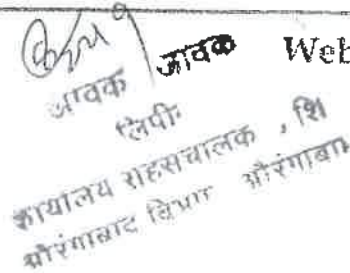 जावक Web
जावक
लिपीक
कार्यालय सहसंचालक , शि
औरंगाबाद विभाग औरंगाबाद